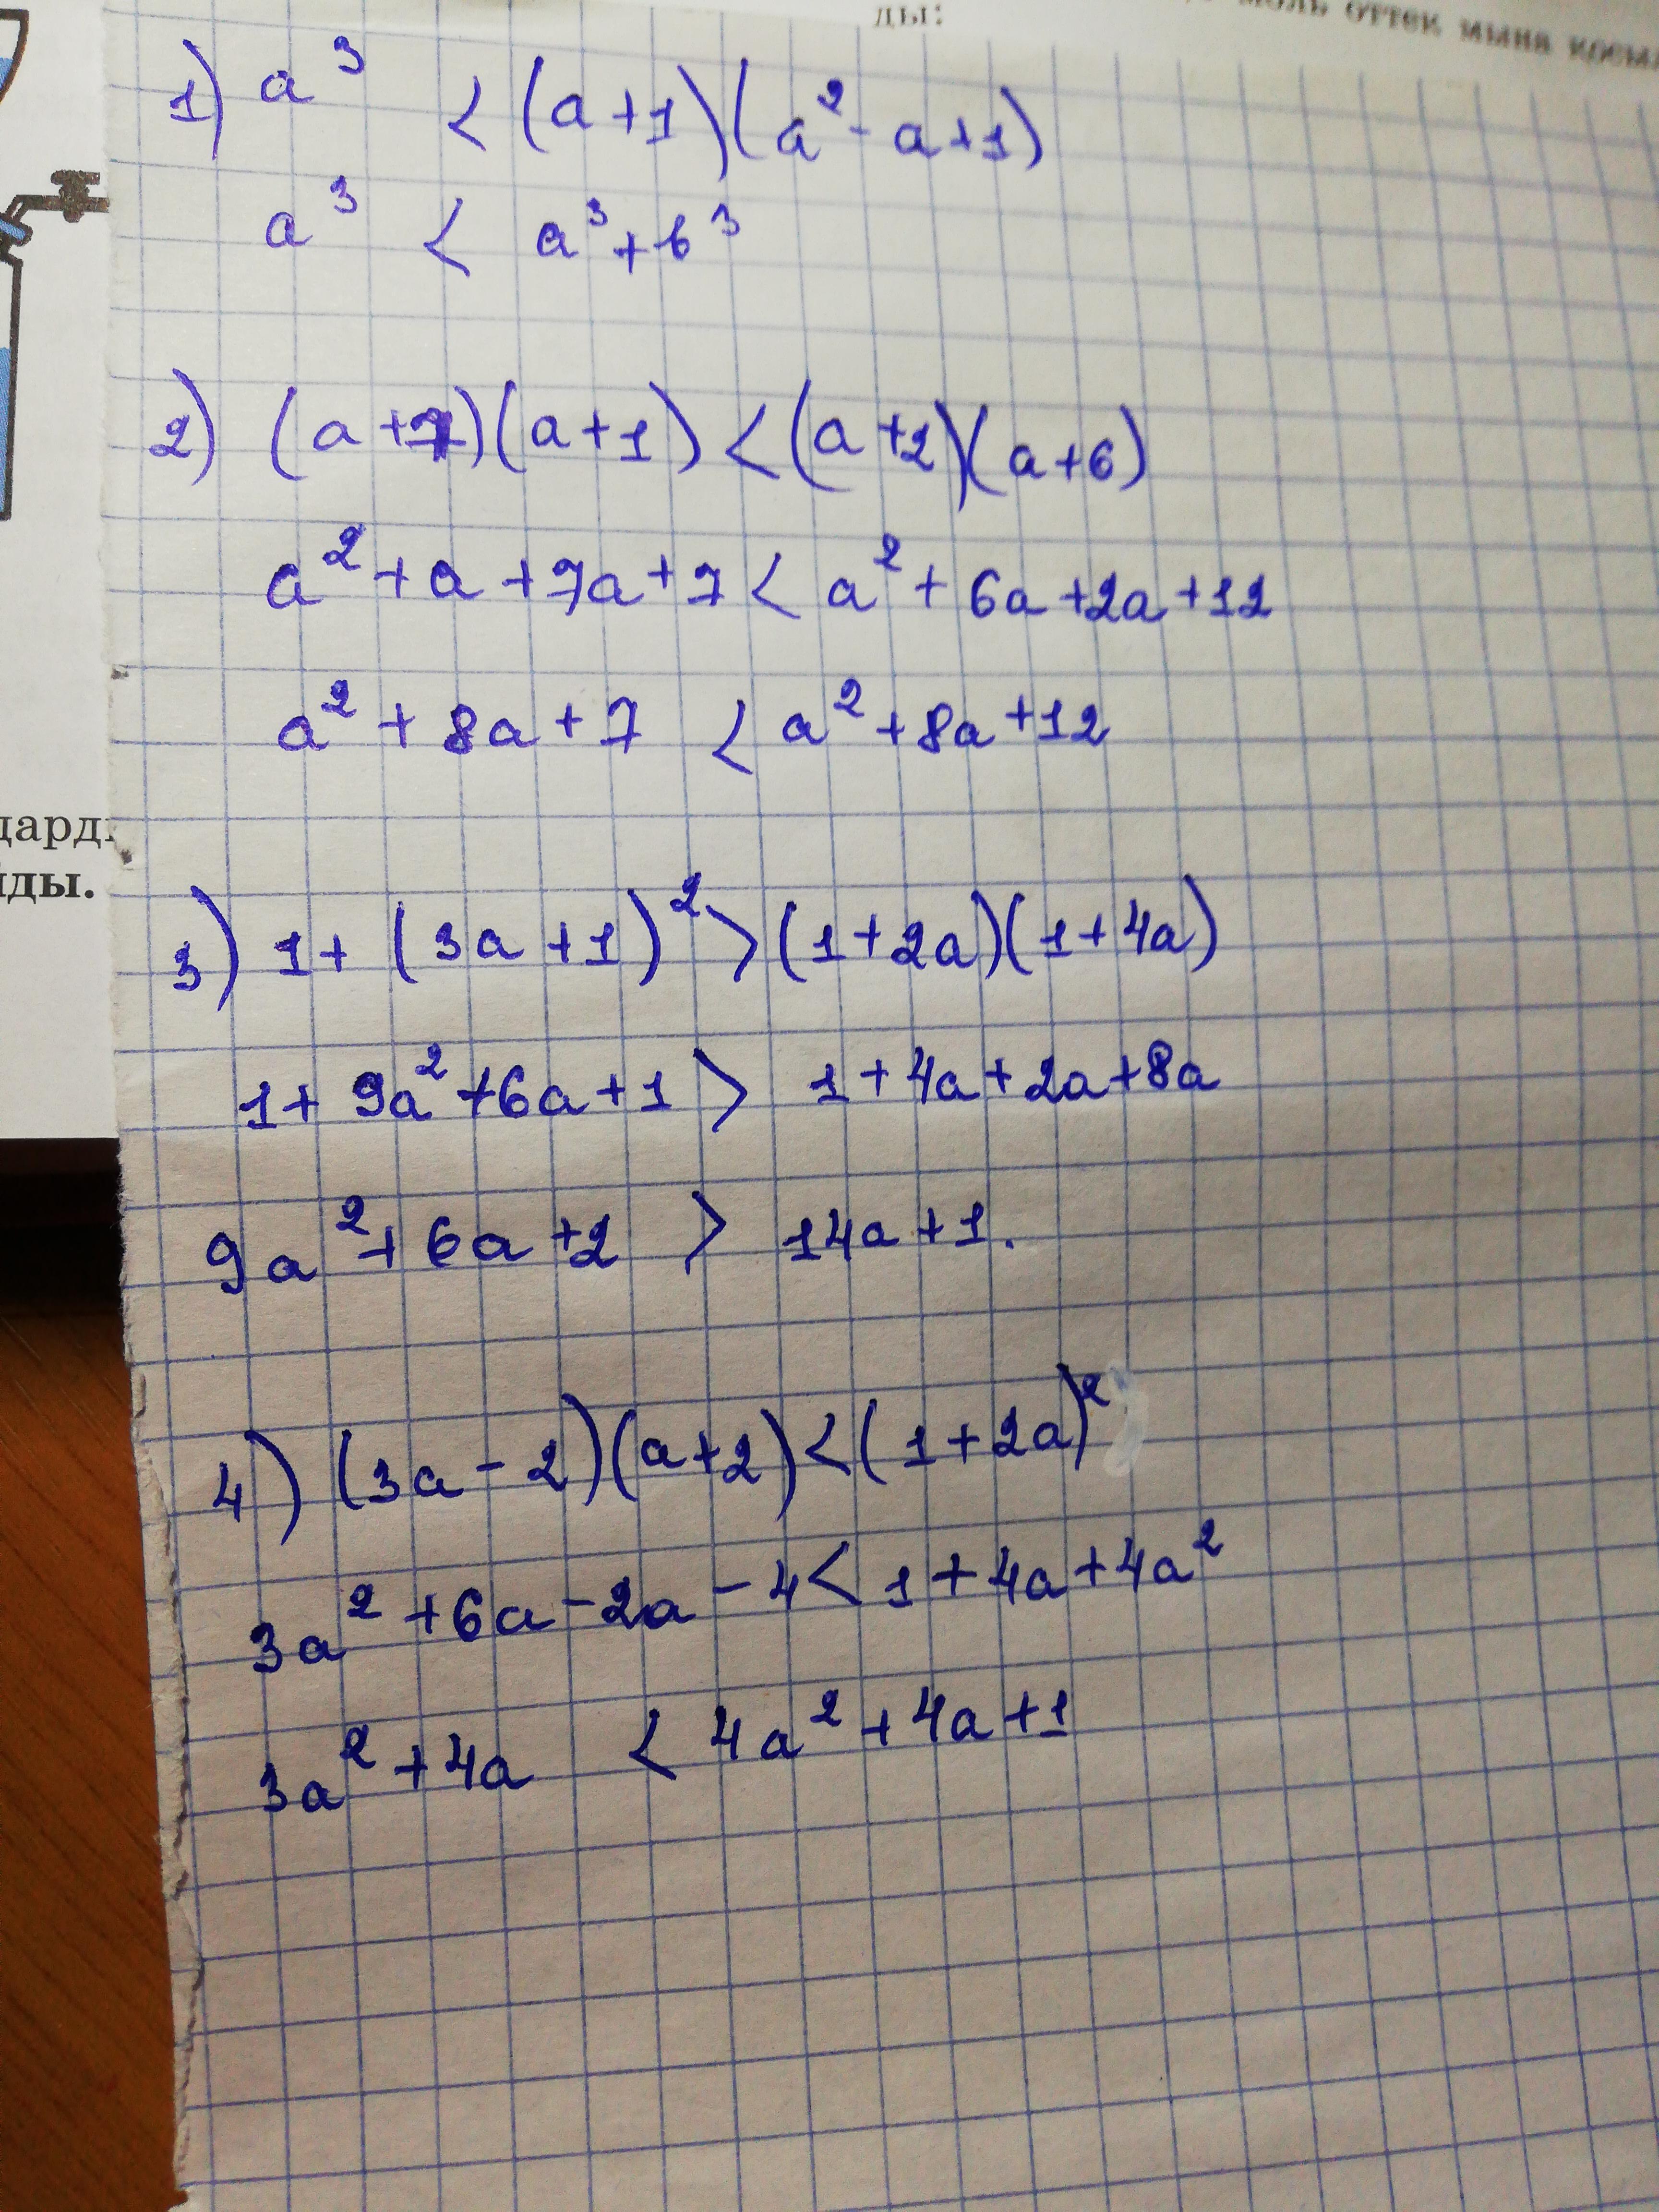 ды:
моль оттек мына
1) a³ < (a+1)(a²-a+1)
a³ < a³+b³
2) (a+7)(a+1) < (a+2)(a+6)
a²+a+7a+7 < a²+6a+2a+12
a²+8a+7 < a²+8a+12
3) 1+(3a+1)² > (1+2a)(1+4a)
1+9a²+6a+1 > 1+4a+2a+8a
9a²+6a+2 > 14a+1.
4) (3a-2)(a+2) < (1+2a)²
3a²+6a-2a-4 < 1+4a+4a²
3a²+4a < 4a²+4a+1